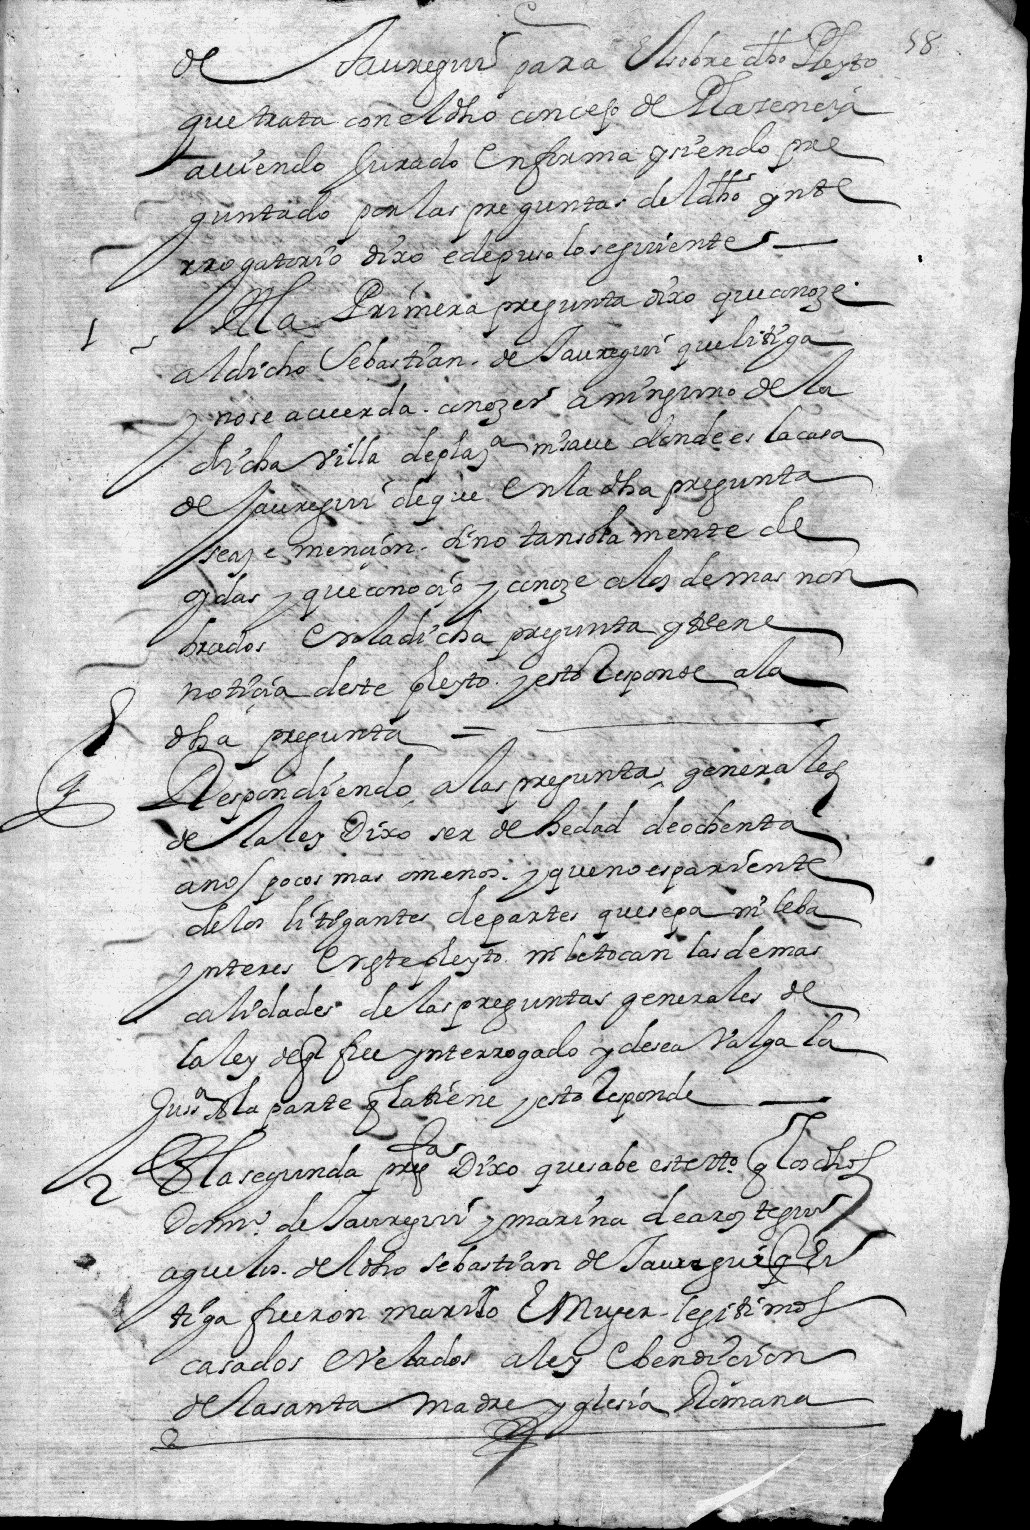 58
de Jauregui para el sobre dho Pleyto
que trata con el dho concejo de Plazencia
auiendo Jurado en forma y siendo pre
guntado por las preguntas del dho ynte
rrogatorio dixo e depuso lo siguiente
1 A la Primera pregunta dixo que conoze
al dicho Sebastian de Jauregui que litiga
y no se acuerda conozer a ninguno de la
dicha villa de plaza ni saue donde es la casa
de Jauregui de que en la dha pregunta
se aze mencion sino tan sola mente de
oydas y que conocio y conoze a los demas non
brados en la dicha pregunta y tiene
noticia deste pleyto y esto Responde a la
dha pregunta =
g Respondiendo a las preguntas generales
de la ley Dixo ser de hedad de ochenta
anos pocos mas o menos y que no es pariente
de los litigantes de partes que sepa ni leba
ynteres en este pleyto ni le tocan las demas
calidades de las preguntas generales de
la ley de q fue ynterrogado y desea Valga la
Jusa a la parte q la tiene y esto Responde
2 A la segunda prega Dixo que sabe este tto. q los dhos
Domi. de Jauregui y marina de arostegui
aguelos del dho Sebastian de Jauregui q li
tiga fueron marido E Muger legitimos
casados E Velados a ley E bendicion
de la santa Madre yglesia Romana